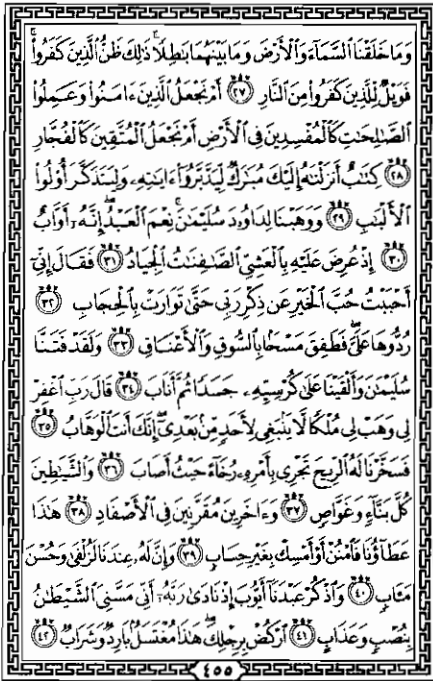 وَمَا خَلَقْنَا ٱلسَّمَآءَ وَٱلْأَرْضَ وَمَا بَيْنَهُمَا بَٰطِلًا ۚ ذَٰلِكَ ظَنُّ ٱلَّذِينَ كَفَرُوا۟ ۚ
فَوَيْلٌ لِّلَّذِينَ كَفَرُوا۟ مِنَ ٱلنَّارِ ٢٧ أَمْ نَجْعَلُ ٱلَّذِينَ ءَامَنُوا۟ وَعَمِلُوا۟
ٱلصَّٰلِحَٰتِ كَٱلْمُفْسِدِينَ فِى ٱلْأَرْضِ أَمْ نَجْعَلُ ٱلْمُتَّقِينَ كَٱلْفُجَّارِ
٢٨ كِتَٰبٌ أَنزَلْنَٰهُ إِلَيْكَ مُبَٰرَكٌ لِّيَدَّبَّرُوٓا۟ ءَايَٰتِهِۦ وَلِيَتَذَكَّرَ أُو۟لُوا۟
ٱلْأَلْبَٰبِ ٢٩ وَوَهَبْنَا لِدَاوُۥدَ سُلَيْمَٰنَ ۚ نِعْمَ ٱلْعَبْدُ ۖ إِنَّهُۥٓ أَوَّابٌ
٣٠ إِذْ عُرِضَ عَلَيْهِ بِٱلْعَشِىِّ ٱلصَّٰفِنَٰتُ ٱلْجِيَادُ ٣١ فَقَالَ إِنِّىٓ
أَحْبَبْتُ حُبَّ ٱلْخَيْرِ عَن ذِكْرِ رَبِّى حَتَّىٰ تَوَارَتْ بِٱلْحِجَابِ ٣٢
رُدُّوهَا عَلَىَّ ۖ فَطَفِقَ مَسْحًۢا بِٱلسُّوقِ وَٱلْأَعْنَاقِ ٣٣ وَلَقَدْ فَتَنَّا
سُلَيْمَٰنَ وَأَلْقَيْنَا عَلَىٰ كُرْسِيِّهِۦ جَسَدًا ثُمَّ أَنَابَ ٣٤ قَالَ رَبِّ ٱغْفِرْ
لِى وَهَبْ لِى مُلْكًا لَّا يَنۢبَغِى لِأَحَدٍ مِّنۢ بَعْدِىٓ ۖ إِنَّكَ أَنتَ ٱلْوَهَّابُ ٣٥
فَسَخَّرْنَا لَهُ ٱلرِّيحَ تَجْرِى بِأَمْرِهِۦ رُخَآءً حَيْثُ أَصَابَ ٣٦ وَٱلشَّيَٰطِينَ
كُلَّ بَنَّآءٍ وَغَوَّاصٍ ٣٧ وَءَاخَرِينَ مُقَرَّنِينَ فِى ٱلْأَصْفَادِ ٣٨ هَٰذَا
عَطَآؤُنَا فَٱمْنُنْ أَوْ أَمْسِكْ بِغَيْرِ حِسَابٍ ٣٩ وَإِنَّ لَهُۥ عِندَنَا لَزُلْفَىٰ وَحُسْنَ
مَـَٔابٍ ٤٠ وَٱذْكُرْ عَبْدَنَآ أَيُّوبَ إِذْ نَادَىٰ رَبَّهُۥٓ أَنِّى مَسَّنِىَ ٱلشَّيْطَٰنُ
بِنُصْبٍ وَعَذَابٍ ٤١ ٱرْكُضْ بِرِجْلِكَ ۖ هَٰذَا مُغْتَسَلٌۢ بَارِدٌ وَشَرَابٌ ٤٢
٤٥٥